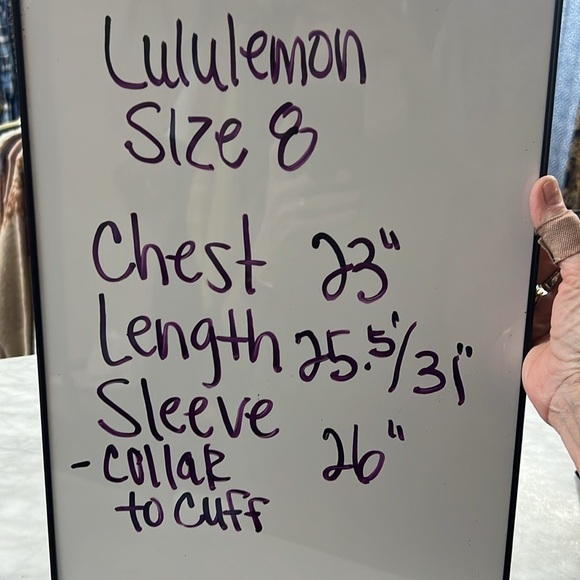 Lululemon
Size 8
Chest 23"
Length 25.5"/31"
Sleeve
- Collar 26"
to Cuff